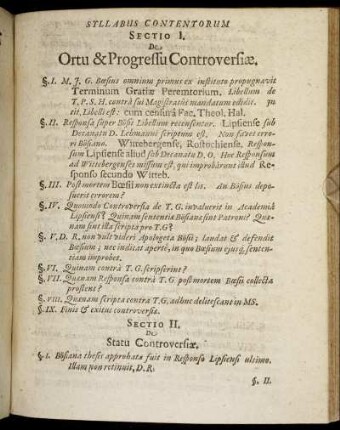 SYLLABUS CONTENTORUM
SECTIO I.
De
Ortu & Progressu Controversiæ.
§. I. M. J. G. Bœsius omnium primus ex instituto propugnavit
Terminum Gratiæ Peremtorium. Libellum de
T. P. S. H. contrà sui Magistratûs mandatum edidit.
tit. Libelli est: cum censurâ Fac. Theol. Hal.
§. II. Responsa super Bösii Libellum recensentur. Lipsiense sub
Decanatu D. Lehmanni scriptum est. Non favet erro-
ri Bösiano. Wittebergense, Rostochiense. Respon-
sum Lipsiense aliud sub Decanatu D. O. Hoc Responsum
ad Wittebergenses missum est, qui improbârunt illud Re-
sponso secundo Witteb.
§. III. Post mortem Bœsii non extincta est lis. An Bösius depo-
suerit errorem?
§. IV. Quomodo Controversia de T. G. invaluerit in Academiâ
Lipsiensi? Quinam sententiæ Bösianæ sint Patroni? Quæ-
nam sint ista scripta pro T. G?
§. V. D. R. non vult videri Apologeta Bösii; laudat & defendit
Bœsium; nec indicat apertè, in quo Bœsium ejusq; senten-
tiam improbet.
§. VI. Quinam contrà T. G. scripserint?
§. VII. Quænam Responsa contrà T. G. post mortem Bœsii collecta
prostent?
§. VIII. Quænam scripta contra T. G. adhuc delitescant in MS.
§. IX. Finis & exitus controversiæ.
SECTIO II.
De
Statu Controversiæ.
§. I. Bösiana thesis approbata fuit in Responso Lipsiensi ultimo.
Illam non retinuit, D. R.
§. II.